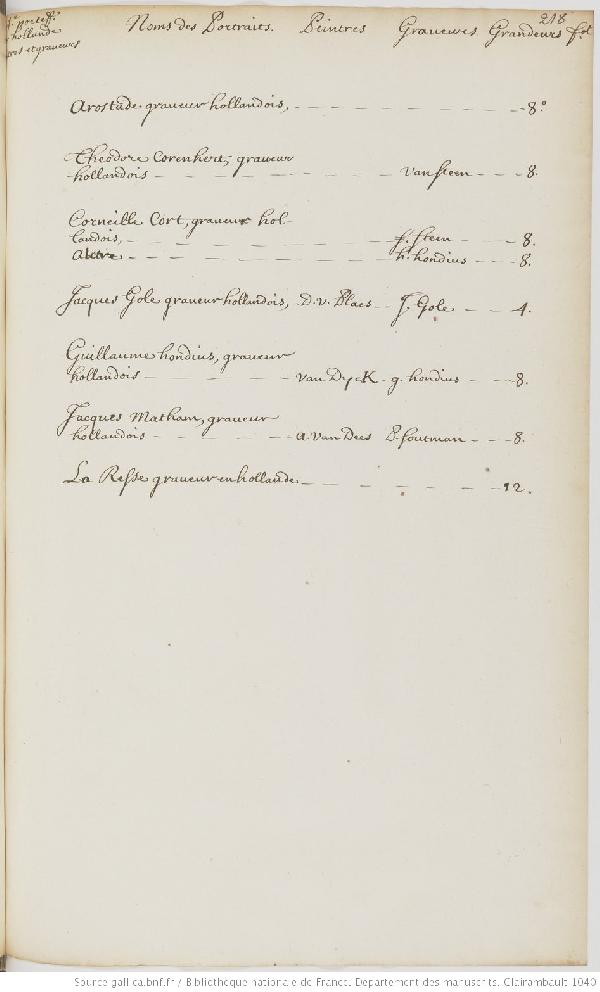 218
porteff.
hollande
et graveurs
Noms des Portraits. Peintres Graveurs Grandeurs fol
Arostade graveur hollandois, 8.o
Théodore Corenhert, graveur
hollandois vansteen 8.
Corneille Cort, graveur hol-
landois, f. steen 8.
Autre h. hondius 8.
Jacques Gole graveur hollandois, D. v. Plaes J. Gole 4.
Guillaume hondius, graveur
hollandois van Dyck g. hondius 8.
Jacques Matham, graveur
hollandois P. soutman 8.
La Resse graveur en hollande 12.
Source gallica.bnf.fr / Bibliothèque nationale de France. Département des manuscrits. Clairambault 1040